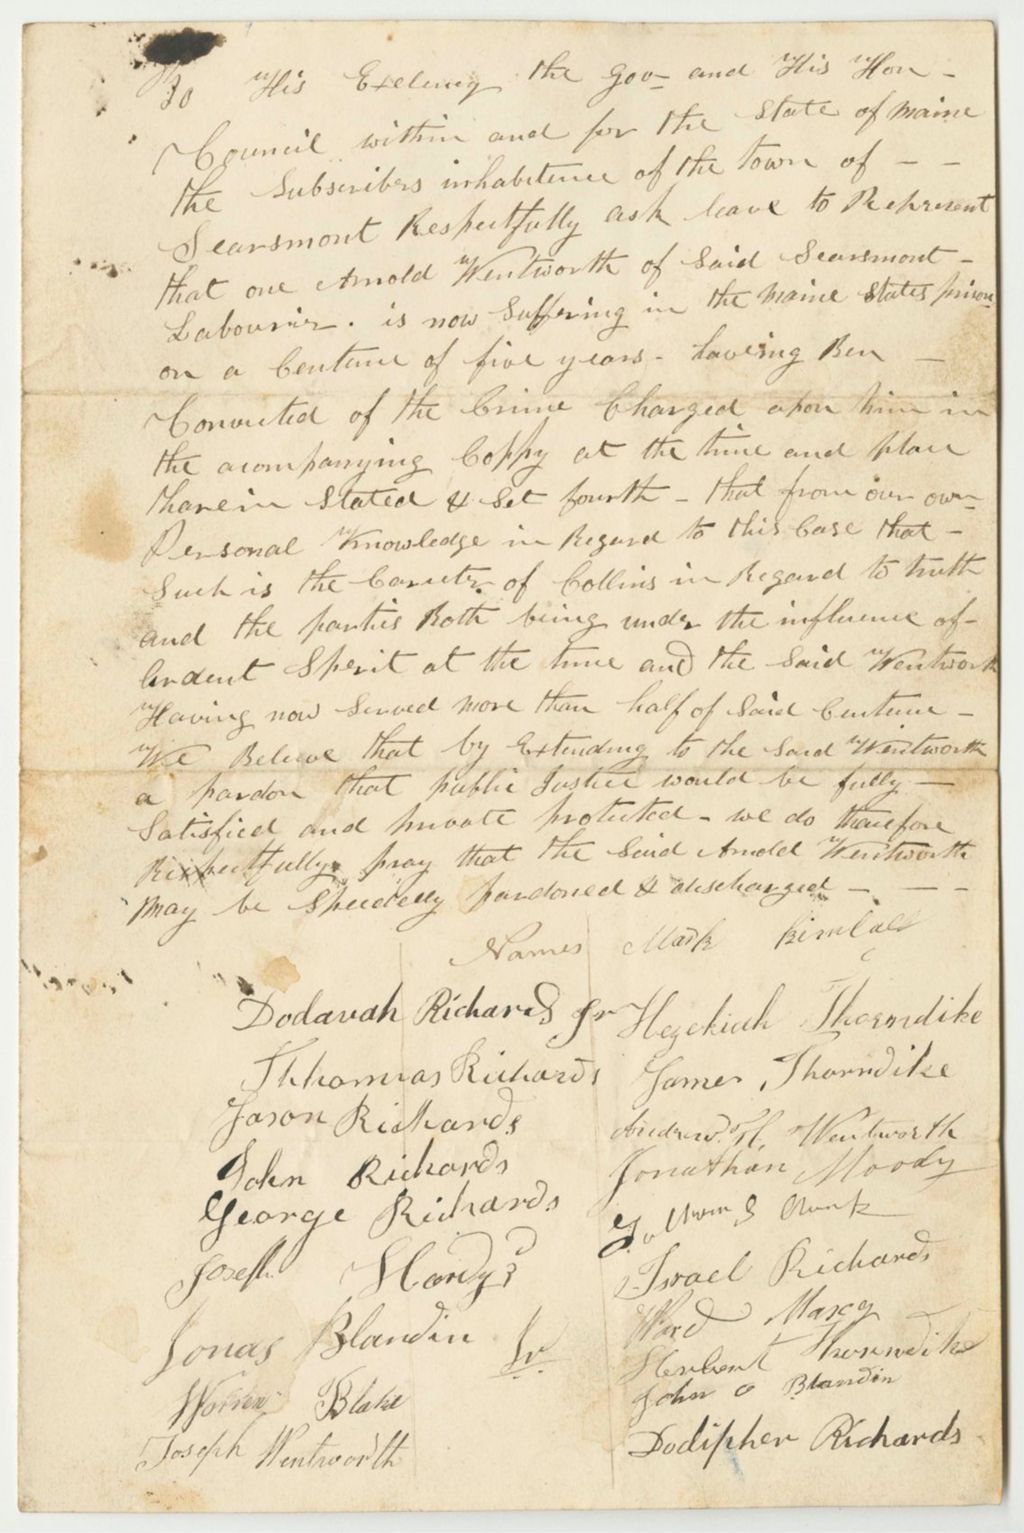 To His Exelency the Gov- and His Hon -
Council within and for the State of Maine
the Subscribers inhabitence of the town of - -
Searsmont Respectfully ask leave to Represent
that one Arnold Wentworth of Said Searsmont -
Labourier. is now Suffering in the Maine States prison
on a Centune of five years - haveing Ben -
Convicted of the Crime Charged upon him in
the acompanying Coppy at the time and place
tharein Stated & Set fourth - that from our own
Personal Knowledge in Regard to this Case that -
Such is the Carricter of Collins in Regard to truth
and the parties Both being under the influence of -
Ardent Sperit at the time and the Said Wentworth
Having now Served more than half of Said Centune -
We Believe that by Extending to the Said Wentworth
a pardon that public Justice would be fully -
Satisfied and private protected - we do tharefore
Respectfully pray that the Said Arnold Wentworth
may be Speedely pardoned & discharged - - -
Names Mark Kimball
Dodavah Richards Jr Hezekiah Thorndike
Thhomas Richards James Thorndike
Jason Richards Andrew H. Wentworth
John Richards Jonathan Moody
George Richards
Joseph Hardy Israel Richards
Jonas Blandin Jr. Ward Marcy
Warren Blake Herbert Thorndike
John O Blandin
Joseph Wentworth Dodipher Richards